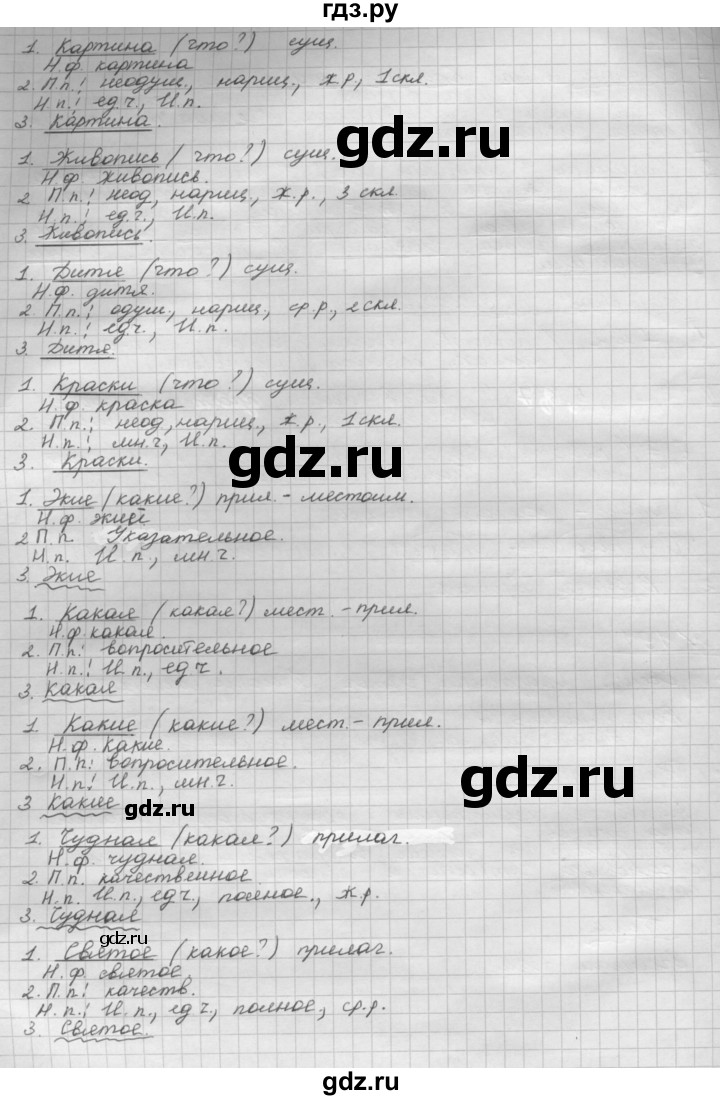 гдз.ру
1. Картина (что?) сущ.
Н.ф. картина
2. П.п.: неодуш., нариц., ж.р., 1 скл.
Н.п.: ед.ч., И.п.
3. Картина.
gdz.ru
1. Живопись (что?) сущ.
Н.ф. живопись.
2 П.п.: неод, нариц., ж.р., 3 скл
Н.п.: ед.ч., И.п.
3. Живопись.
1. Дитя (что?) сущ.
Н.ф. дитя.
2 П.п.: одуш., нариц., ср.р., 2 скл.
Н.п.: ед.ч., И.п.
3. Дитя.
1. Краски (что?) сущ.
Н.ф. краска
2. П.п.: неод, нариц., ж.р., 1 скл.
Н.п.: мн.ч, И.п.
gdz.ru
3. Краски.
1. Экие (какие?) прил. - местоим.
Н.ф.
2 П.п. Указательное.
Н.п. И.п., мн.ч.
3. Экие
1. Какая (какая?) мест. - прил.
Н.ф какая.
2. П.п.: вопросительное
Н.п.: И.п., ед ч.
3. Какая
1. Какие (какие?) мест. - прил.
Н.ф. Какие.
2. П.п: вопросительное.
Н.п.: И.п., мн.ч.
gdz.ru
3 Какие
gdz.ru
1. Чудная (какая?) прилаг.
Н.ф. чудная.
2. П.п. качественное
Н.п. И.п., ед ч., полное., ж.р.
3. Чудная
gdz.ru
1. Святое (какое?) прилаг.
Н.ф. святое.
2. П.п.: качеств.
Н.п.: И.п., ед ч., полное., ср.р.
3. Святое.
gdz.ru